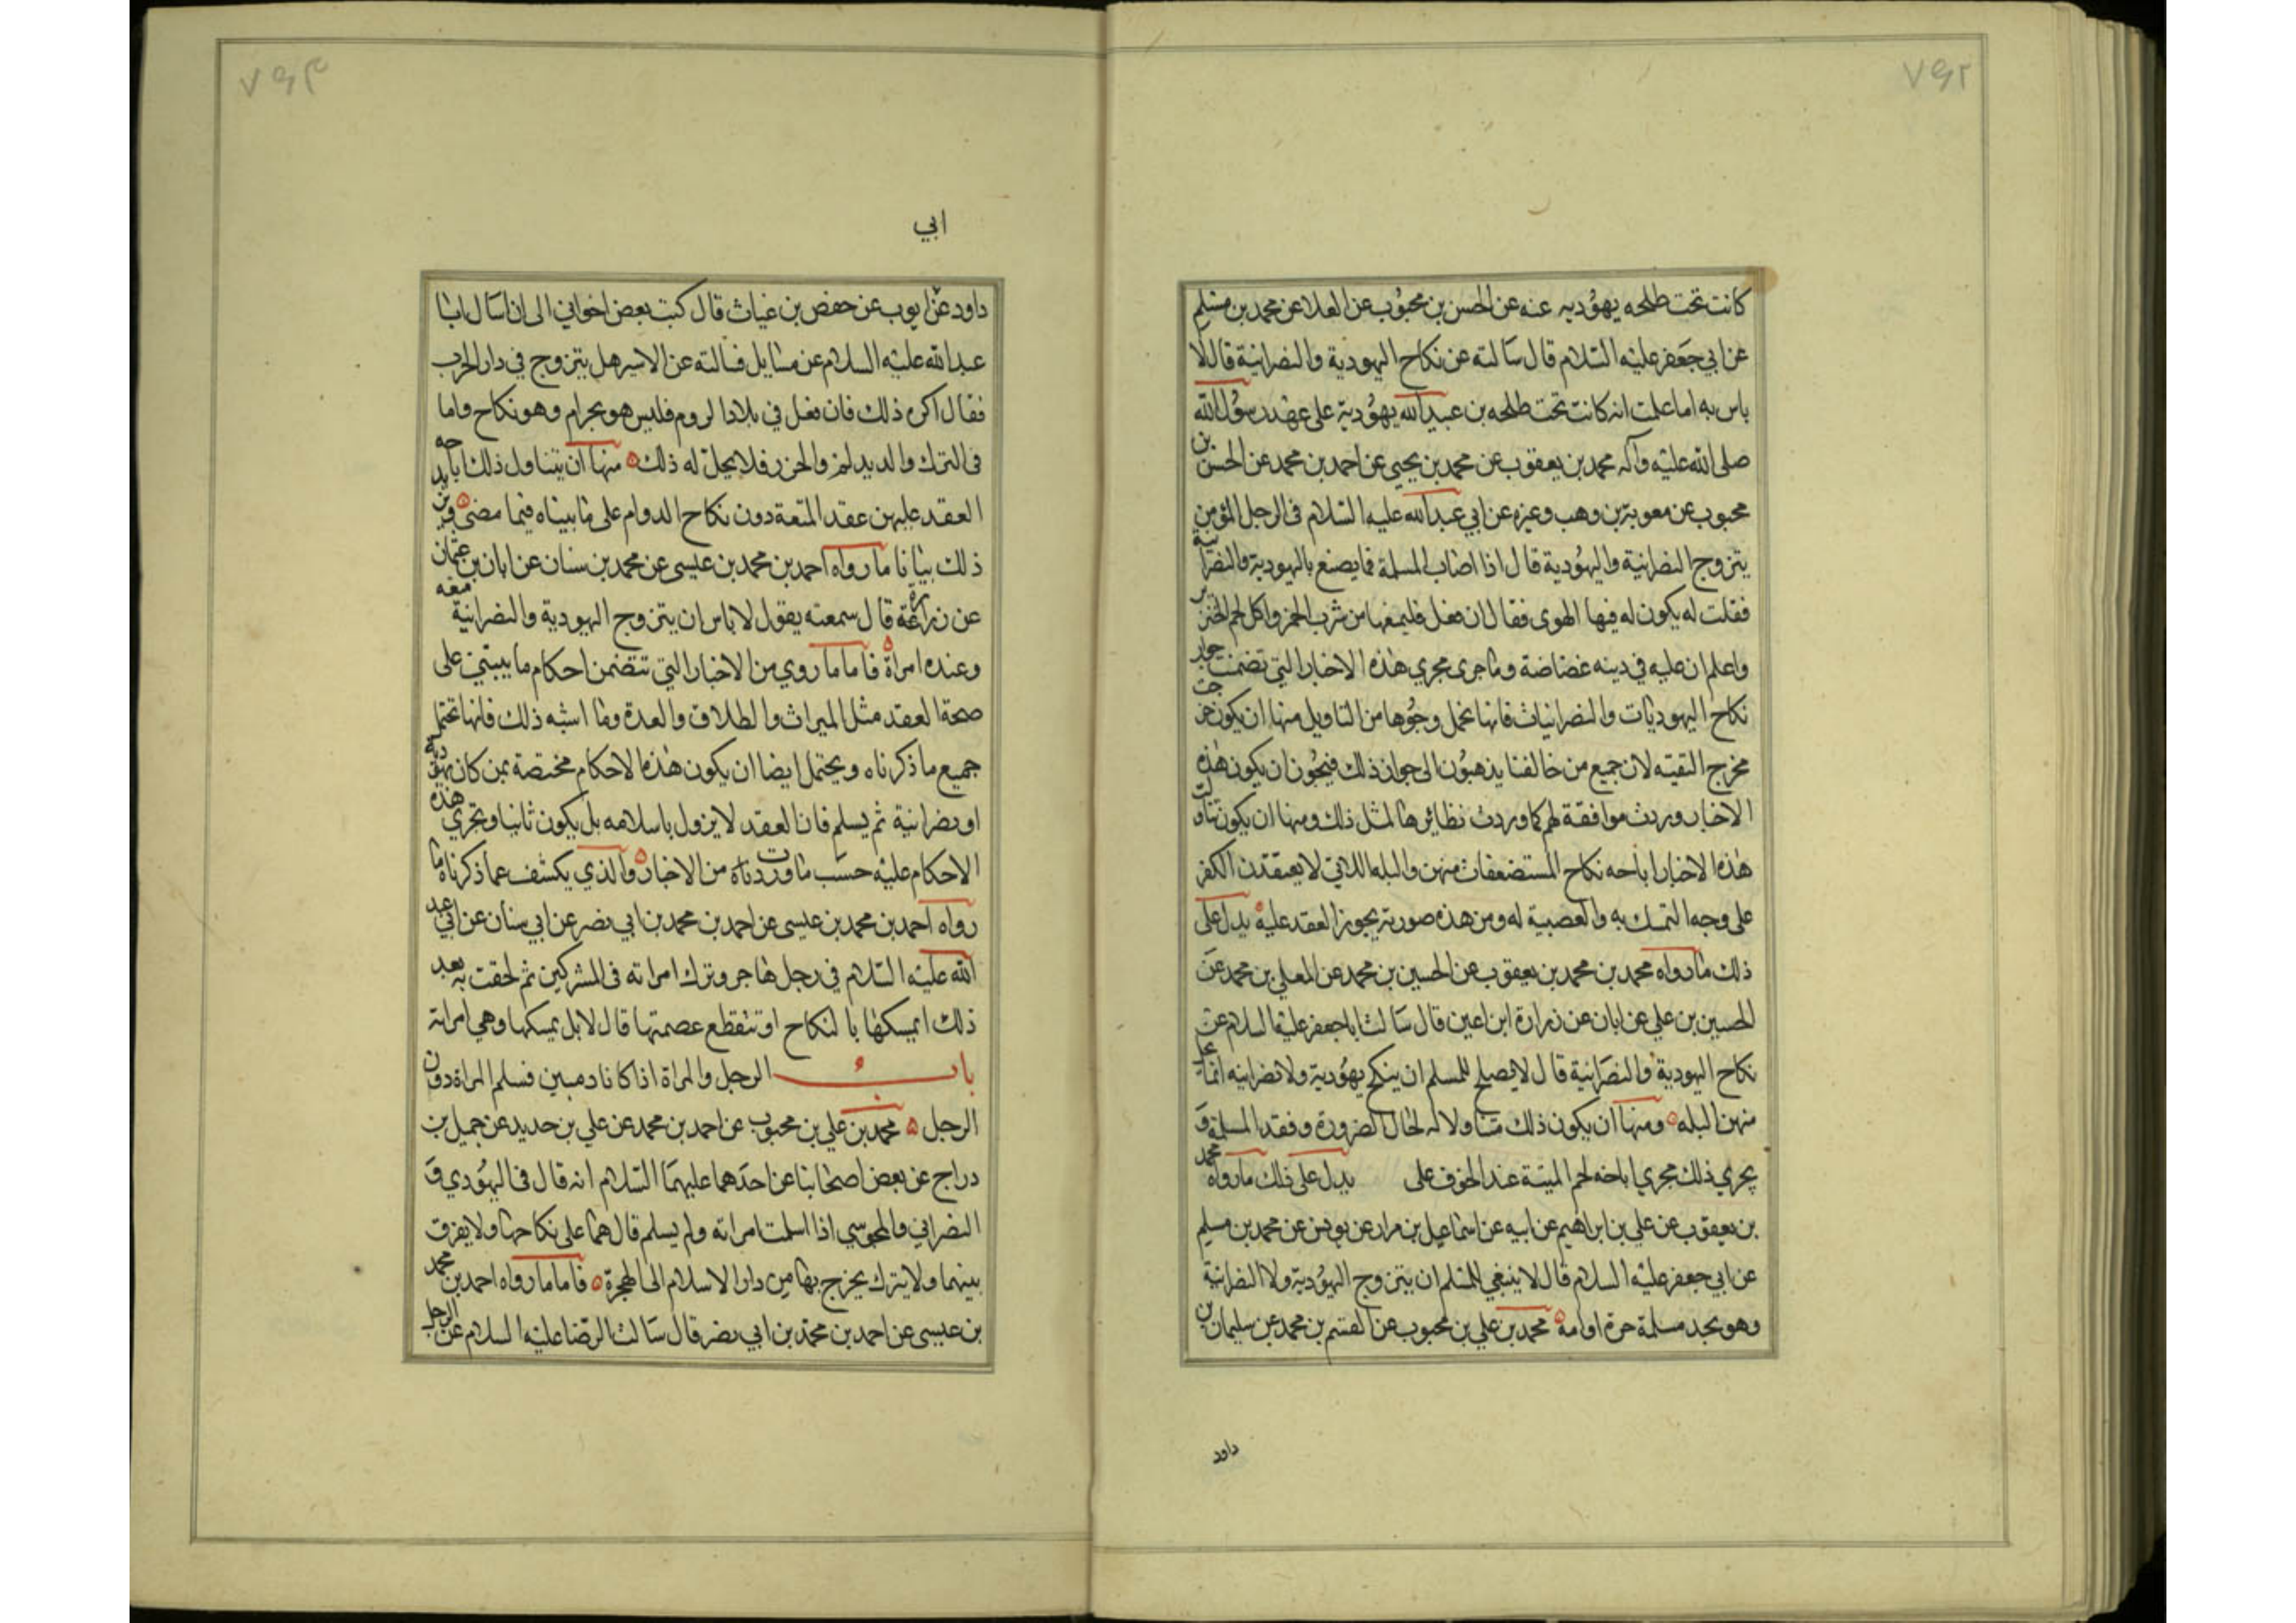 ٧٩٢
كانت تحت طلحه يهوديه عنه عن الحسن بن محبوب عن العلا عن محمد بن مسلم
عن ابي جعفر عليه السلام قال سالته عن نكاح اليهودية والنصرانية قال لا
باس به اما علمت انه كانت تحت طلحه بن عبيد الله يهودية على عهد رسول الله
صلى الله عليه وآله محمد بن يعقوب عن محمد بن يحيى عن احمد بن محمد عن الحسن بن
محبوب عن معوية بن وهب وغيره عن ابي عبد الله عليه السلام في الرجل المؤمن
يتزوج النصرانية واليهودية قال اذا اصاب المسلمة فما يصنع باليهودية والنصرانية
فقلت له يكون له فيها الهوى فقال ان فعل فليمنعها من شرب الخمر واكل لحم الخنزير
واعلم ان عليه في دينه غضاضة وما جرى مجرى هذه الاخبار التي تضمنت جواز
نكاح اليهوديات والنصرانيات فانها تحمل وجوها من التاويل منها ان يكون خرجت
مخرج التقيه لان جميع من خالفنا يذهبون الى جواز ذلك فيجوز ان يكون هذه
الاخبار وردت موافقة لهم كما وردت نظائرها لمثل ذلك ومنها ان يكون تناولت
هذه الاخبار اباحه نكاح المستضعفات منهن والبله اللاتي لا يعتقدن الكفر
على وجه التمسك به والعصبية له ومن هذه صورته يجوز العقد عليه يدل على
ذلك ما رواه محمد بن محمد بن يعقوب عن الحسين بن محمد عن المعلي بن محمد عن
الحسين بن علي عن ابان عن زرارة ابن اعين قال سالت ابا جعفر عليه السلام عن
نكاح اليهودية والنصرانية قال لا يصلح للمسلم ان ينكح يهودية ولا نصرانيه انما يحل
منهن البله ومنها ان يكون ذلك متناولا له لحال الضرورة وفقد المسلمة و
يجري ذلك مجرى اباحه لحم الميتة عند الخوف على يدل على ذلك ما رواه محمد
بن يعقوب عن علي بن ابراهيم عن ابيه عن اسماعيل بن مرار عن يونس عن محمد بن مسلم
عن ابي جعفر عليه السلام قال لا ينبغي للمسلم ان يتزوج اليهودية ولا النصرانية
وهو يجد مسلمة حرة او امه محمد بن علي بن محبوب عن القسم بن محمد عن سليمان بن
داود
٧٩٣
ابي
داود عن ايوب عن حفص بن غياث قال كتب بعض اخواني الى ان اسال ابا
عبد الله عليه السلام عن مسايل فسالته عن الاسير هل يتزوج في دار الحرب
فقال اكره ذلك فان فعل في بلاد الروم فليس هو بحرام وهو نكاح واما
في الترك والديلم والخزر فلا يحل له ذلك منها ان يتناول ذلك اباحه
العقد عليهن عقد المتعة دون نكاح الدوام على ما بيناه فيما مضى
ذلك بيانا ما رواه احمد بن محمد بن عيسى عن محمد بن سنان عن ابان بن عثمان
عن زرارة قال سمعته يقول لا باس ان يتزوج اليهودية والنصرانية متعه
وعنده امراة فاما ما روي من الاخبار التي تتضمن احكام ما يبتني على
صحة العقد مثل الميراث والطلاق والعدة وما اشبه ذلك فانها تحتمل
جميع ما ذكرناه ويحتمل ايضا ان يكون هذه الاحكام مختصة بمن كان يهودية
او نصرانية ثم يسلم فان العقد لا يزول باسلامه بل يكون ثانيا وتجري هذه
الاحكام عليه حسب ما وردت من الاخبار والذي يكشف عما ذكرناه ما
رواه احمد بن محمد بن عيسى عن احمد بن محمد بن ابي نصر عن ابي سنان عن ابي عبد
الله عليه السلام في رجل هاجر وترك امراته في المشركين ثم لحقت به بعد
ذلك ايمسكها بالنكاح او تنقطع عصمتها قال لا بل يمسكها وهي امراته
باب الرجل والمراة اذا كانا ذميين فسلم المراة دون
الرجل محمد بن علي بن محبوب عن احمد بن محمد عن علي بن حديد عن جميل بن
دراج عن بعض اصحابنا عن احدهما عليهما السلام انه قال في اليهودي و
النصراني والمجوسي اذا اسلمت امراته ولم يسلم قال هما على نكاحهما ولا يفرق
بينهما ولا يترك يخرج بها من دار الاسلام الى الهجرة فاما ما رواه احمد بن محمد
بن عيسى عن احمد بن محمد بن ابي نصر قال سالت الرضا عليه السلام عن الرجل